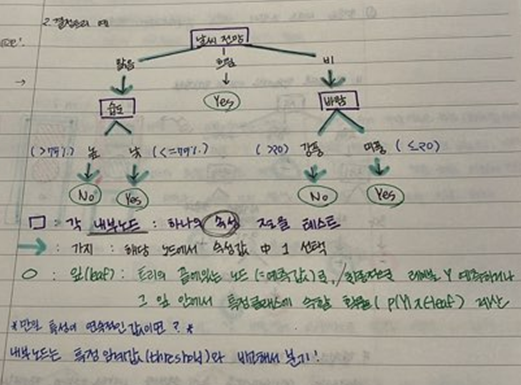 2. 결정트리 예
날씨 전망
맑음 흐림 비
→
습도 Yes 바람
(>77%) 높 낮 (<=77%) (>20) 강풍 미풍 (≤20)
No Yes No Yes
□ : 각 내부노드 : 하나의 속성 값을 테스트
→ : 가지 : 해당 노드에서 속성값 中 1 선택
○ : 잎(leaf) : 트리의 끝에있는 노드 (=예측값)로, 최종적으로 레이블 Y 예측하거나
그 잎 안에서 특정클래스에 속할 확률( P(Y|x∈leaf) 계산
*만일 특성이 연속적인 값이면?*
내부노드는 특정 임계값(threshold)와 비교해서 분기!